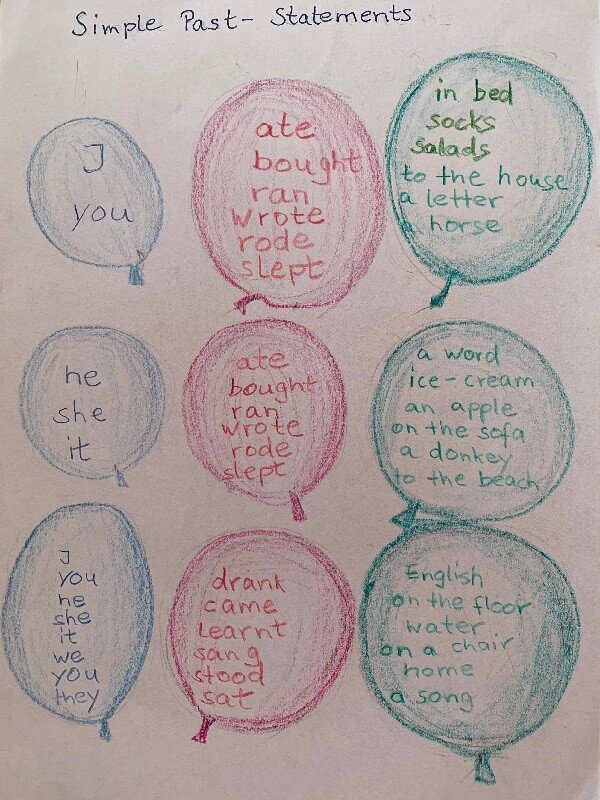 Simple Past - Statements
I
you
ate
bought
ran
wrote
rode
slept
in bed
socks
salads
to the house
a letter
a horse
he
she
it
ate
bought
ran
wrote
rode
slept
a word
ice-cream
an apple
on the sofa
a donkey
to the beach
I
you
he
she
it
we
you
they
drank
came
learnt
sang
stood
sat
English
on the floor
water
on a chair
home
a song